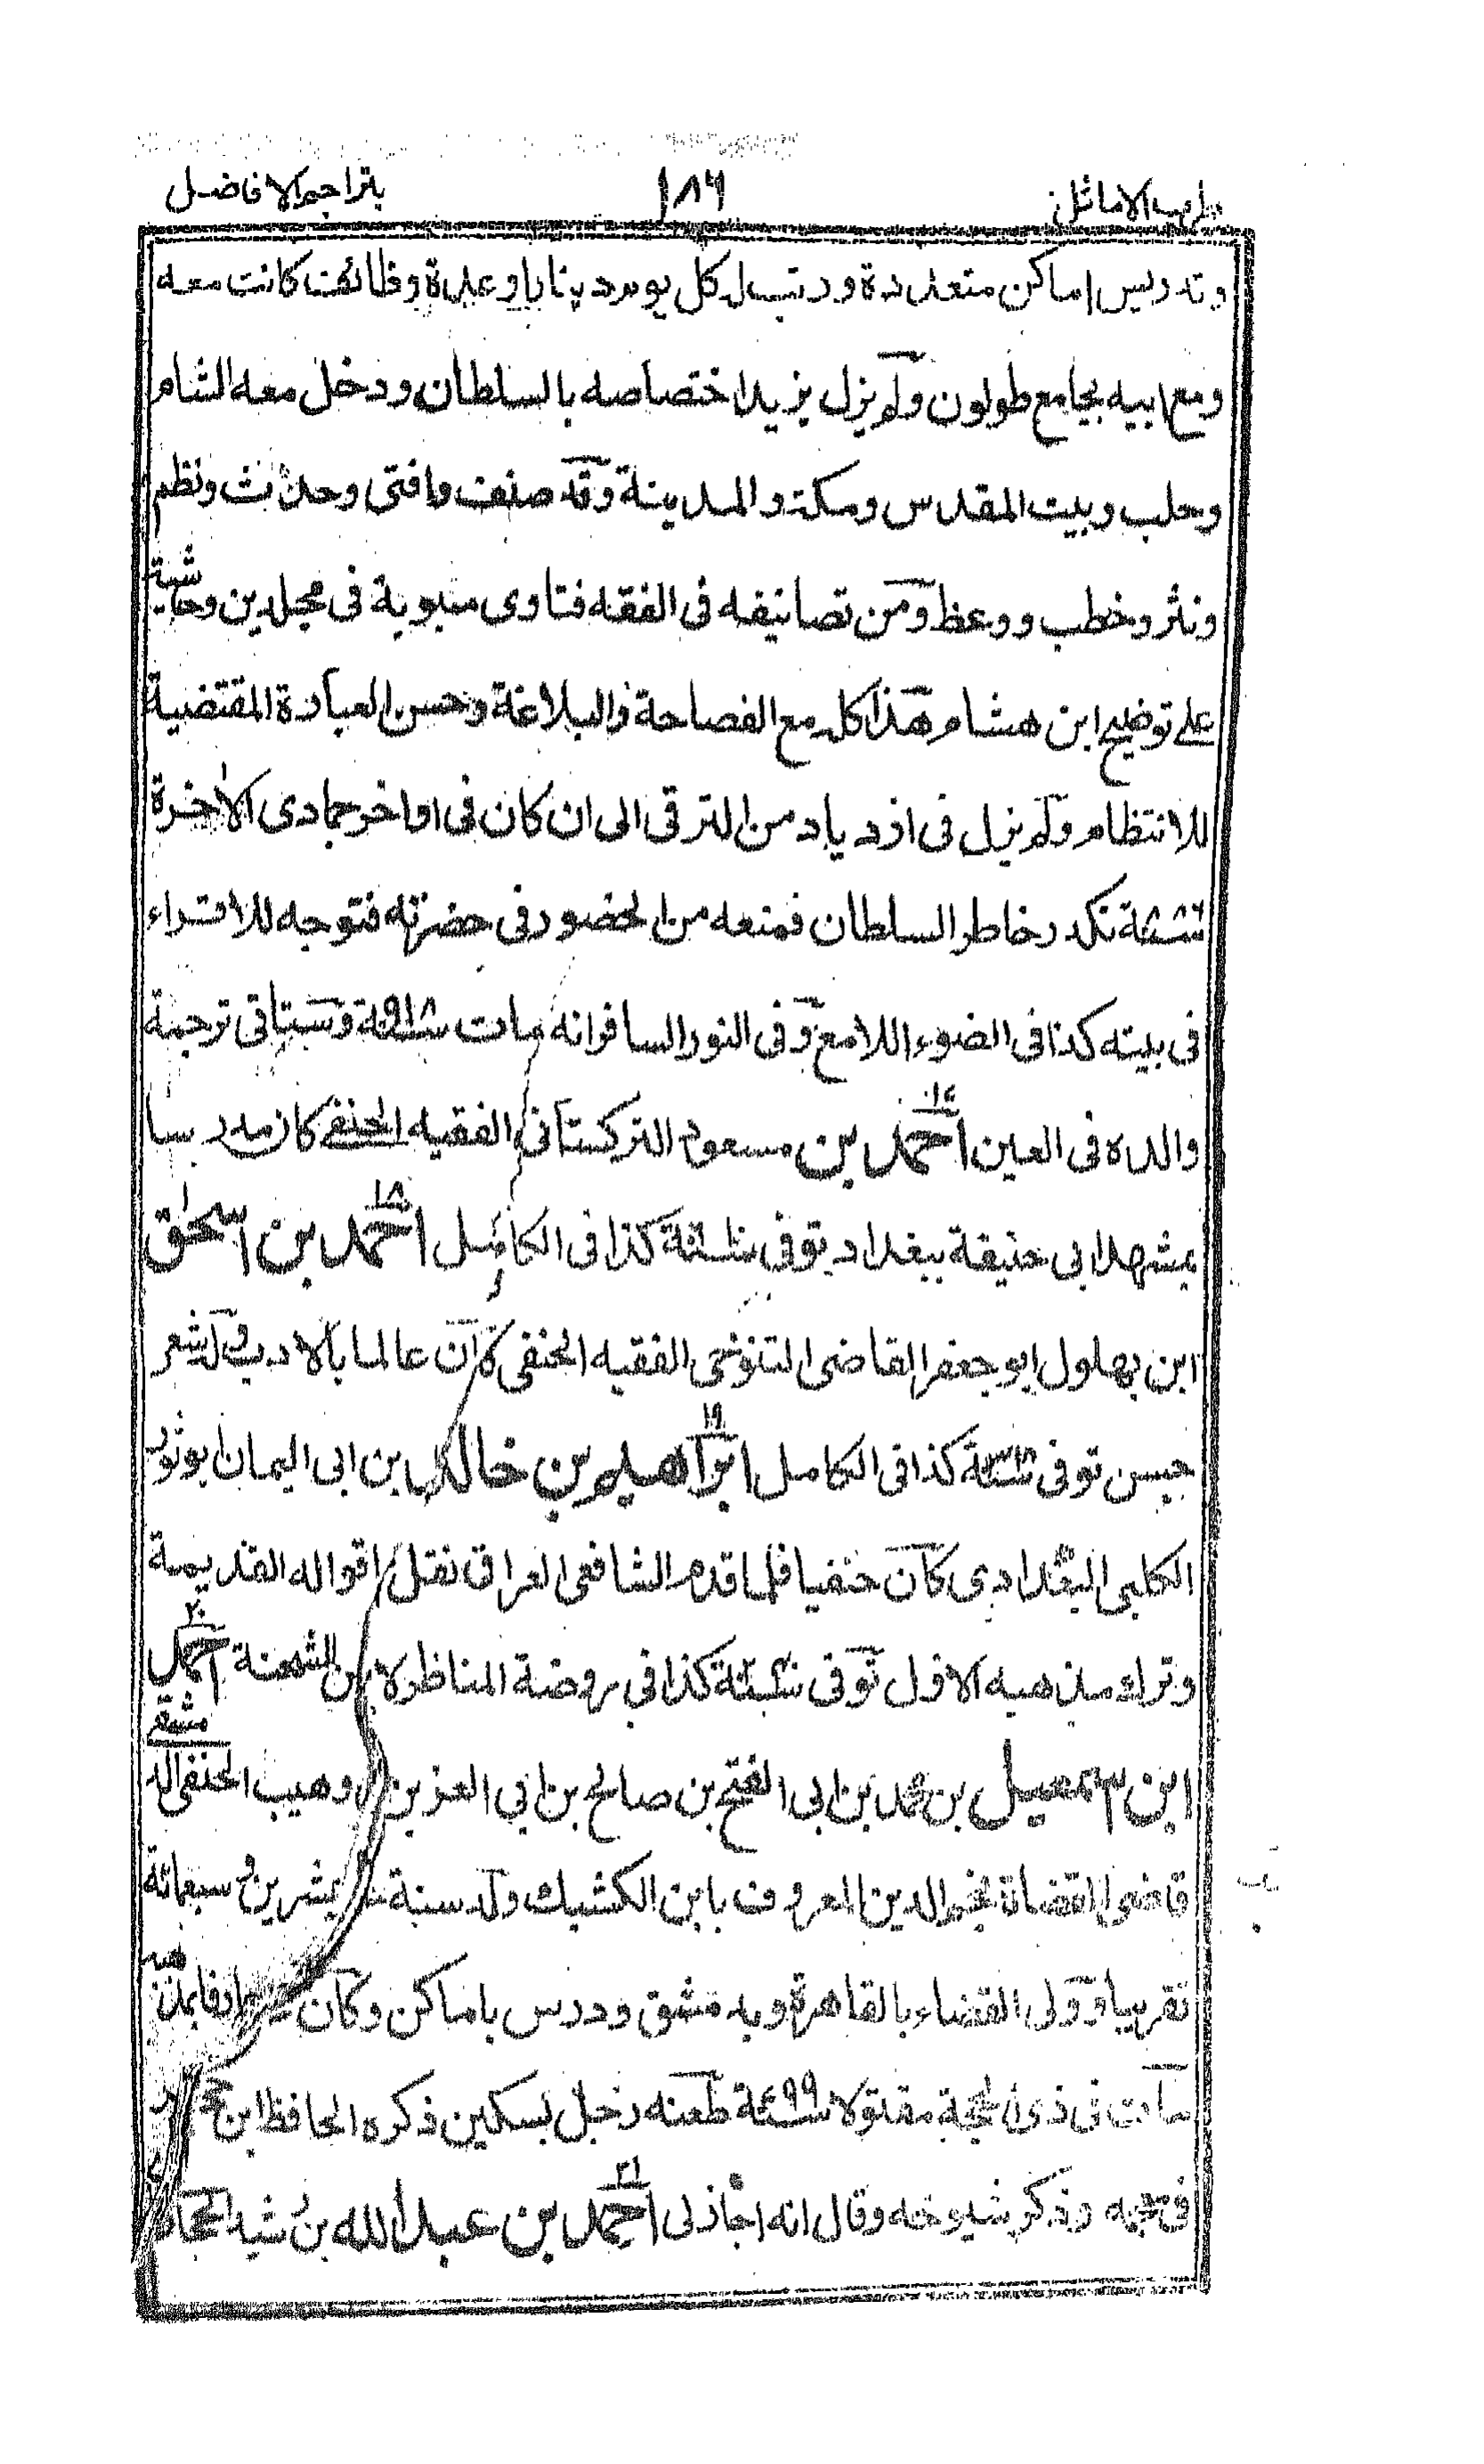 طرب الاماثل ١٨٦ بتراجم الافاضل
وتدريس اماكن متعددة ورتب له كل يوم دينارا وعدة وظائف كانت معه
ومع ابيه بجامع طولون ولم يزل يزيد اختصاصه بالسلطان ودخل معه الشام
وحلب وبيت المقدس ومكة والمدينة وقد صنف وافتى وحدث ونظم
ونثر وخطب ووعظ ومن تصانيفه فى الفقه فتاوى مبوبة فى مجلدين وحاشية
على توضيح ابن هشام هذا كله مع الفصاحة والبلاغة وحسن العبارة المقتضية
للانتظام ولم يزل فى ازدياد من الترقى الى ان كان فى اواخر جمادى الاخرة
تكدر خاطر السلطان فمنعه من الحضور فى حضرته فتوجه للاقراء
فى بيته كذا فى الضوء اللامع وفى النور السافر انه مات سنة ٩١٨ وستاتى ترجمة
والده فى العين احمد بن مسعود التركستانى الفقيه الحنفى كان مدرسا
بمشهد ابى حنيفة ببغداد توفى كذا فى الكامل ١٨ احمد بن اسحق
ابن بهلول ابو جعفر القاضى التنوخى الفقيه الحنفى كان عالما بالادب وله شعر
حسن توفى سنة ٣١٨ كذا فى الكامل ١٩ ابراهيم بن خالد بن ابى اليمان ابو ثور
الكلبى البغدادى كان حنفيا فلما قدم الشافعى العراق نقل اقواله القديمة
وترك مذهبه الاول توفى كذا فى روضة المناظر لابن الشحنة ٢٠ احمد
ابن اسمعيل بن محمد بن ابى الفتح بن صالح بن ابى العز بن وهيب الحنفى الدمشقى
قاضى القضاة نجم الدين المعروف بابن الكشك ولد سنة عشرين وسبعمائة
تقريبا وولى القضاء بالقاهرة وبدمشق ودرس باماكن وكان عارفا بمذهبه
مات فى ذى الحجة مقتولا سنة ٤٩٩ طعنه رجل بسكين ذكره الحافظ ابن حجر
فى وذكر شيوخه وقال انه اجاز لى ٢١ احمد بن عبد الله بن